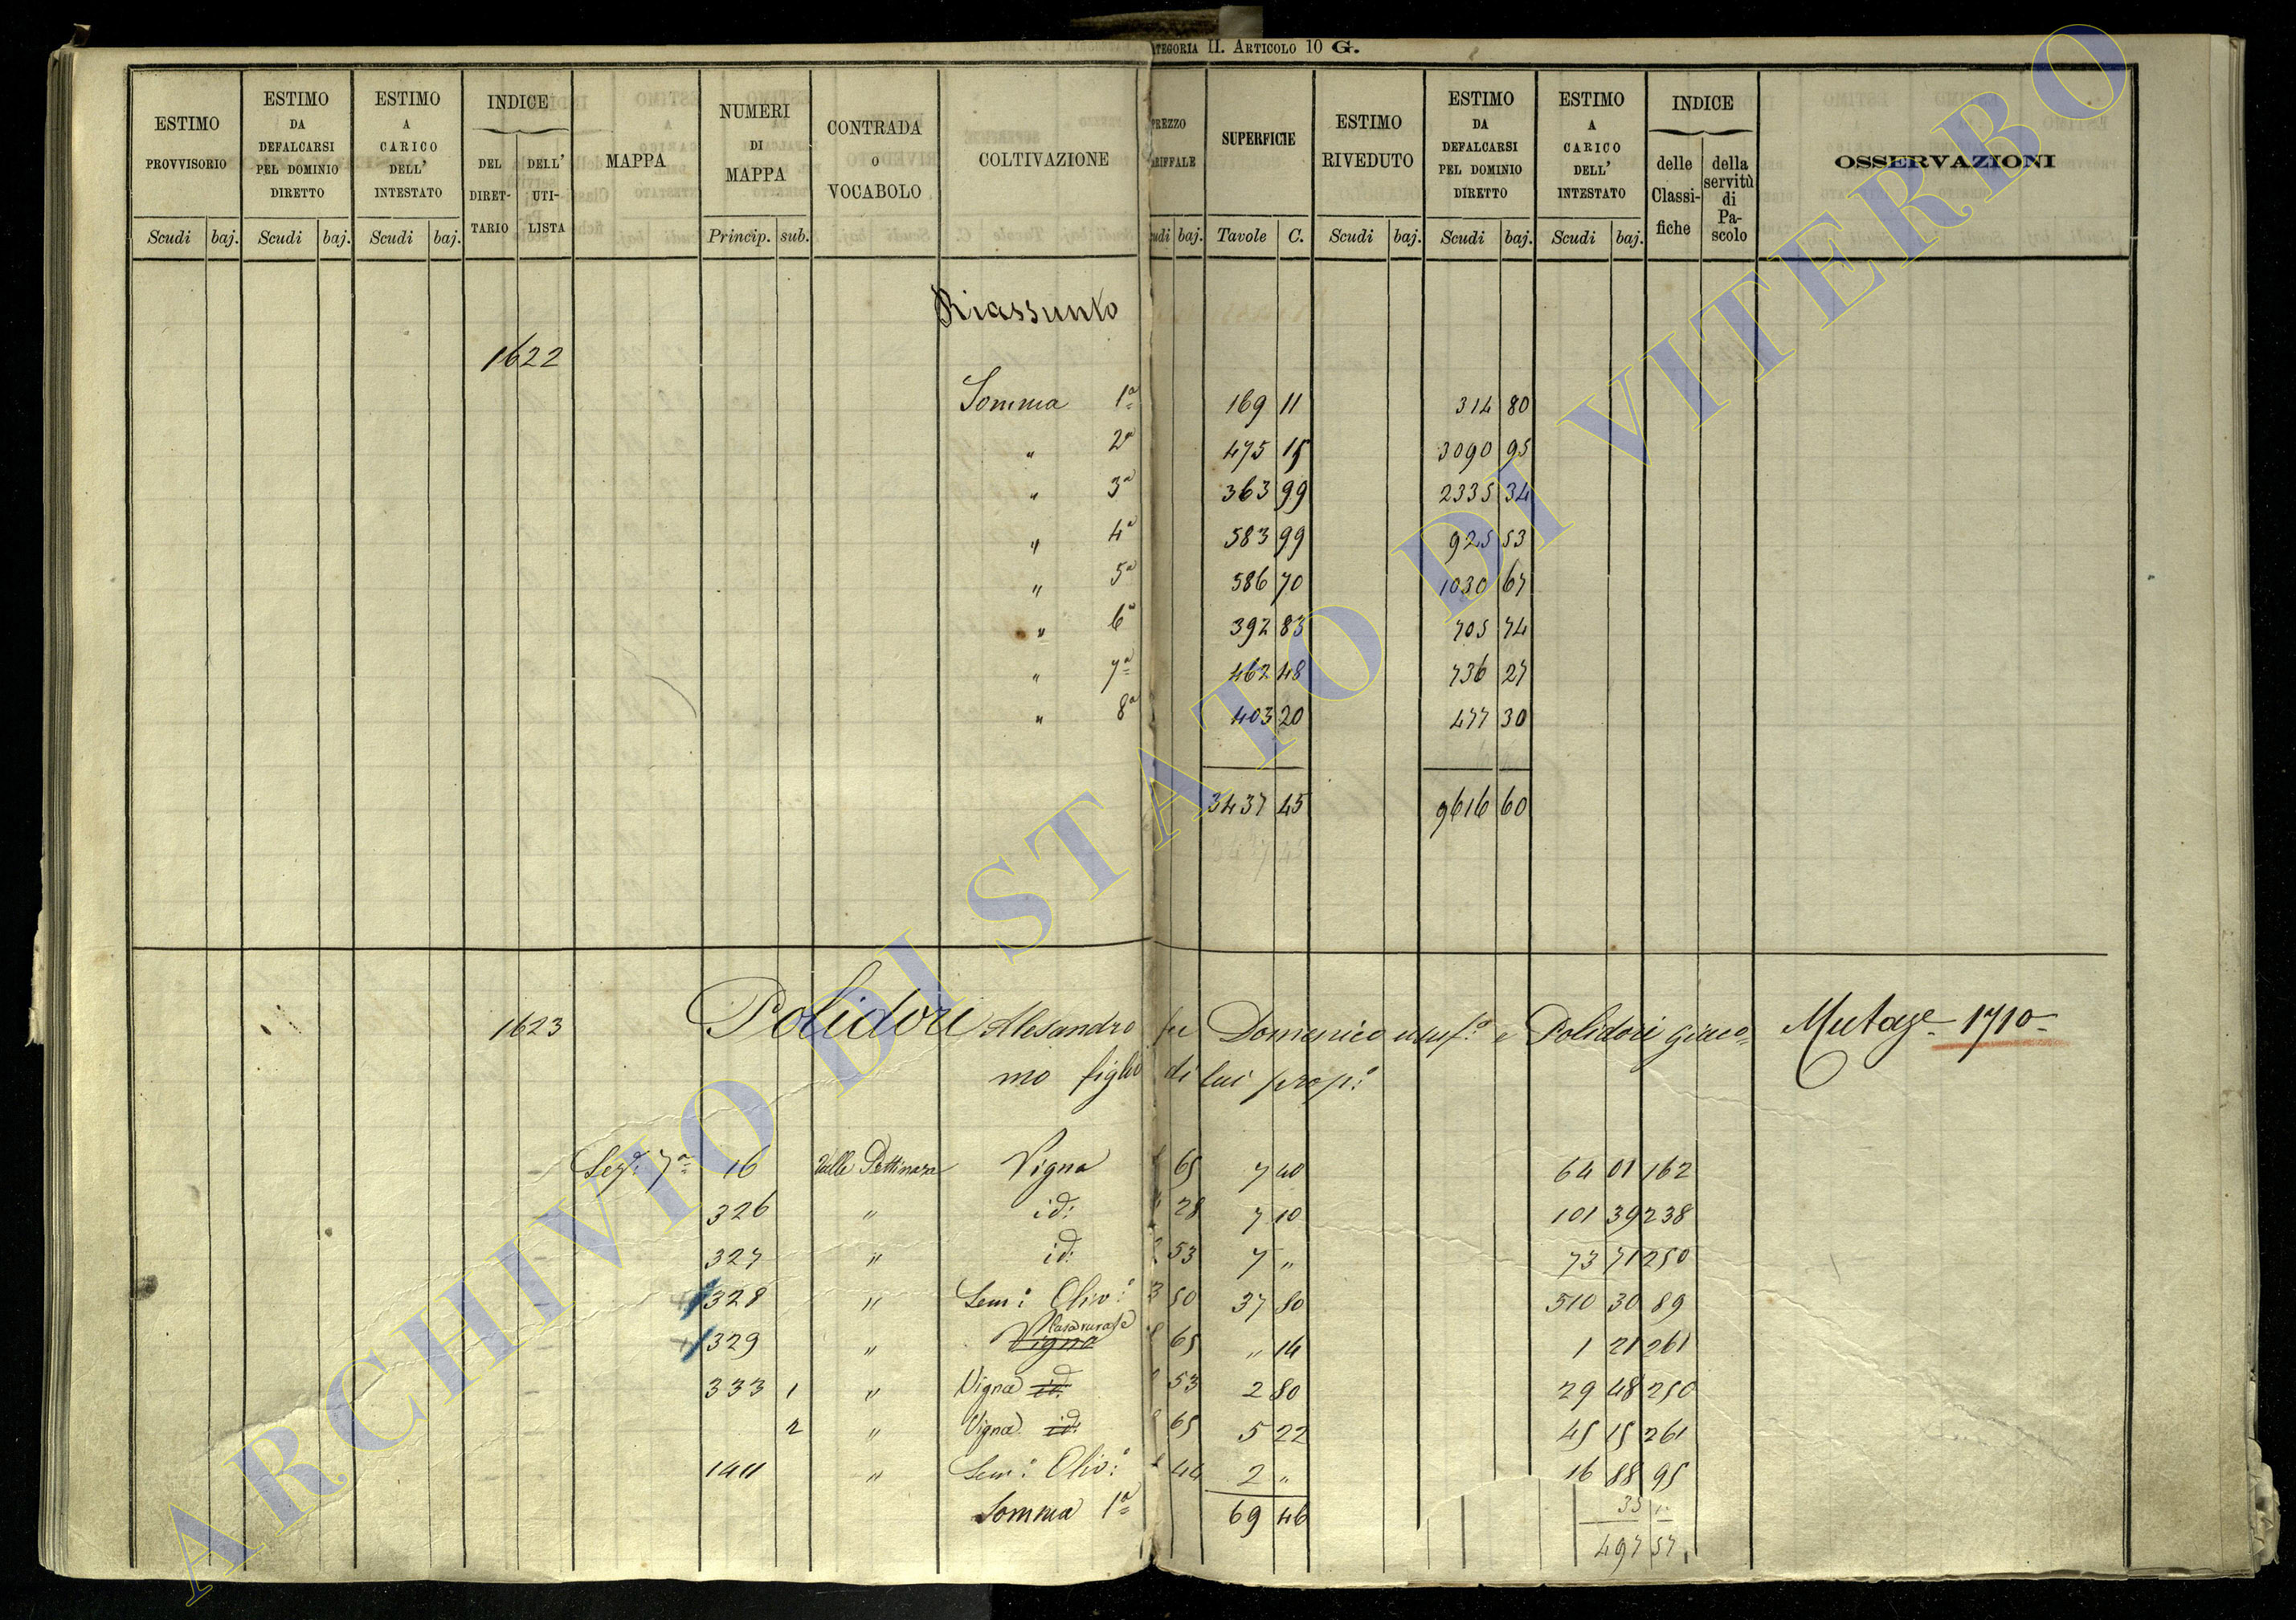 CATEGORIA II. ARTICOLO 10 G.
ESTIMO PROVVISORIO | ESTIMO DA DEFALCARSI PEL DOMINIO DIRETTO | ESTIMO A CARICO DELL' INTESTATO | INDICE | MAPPA | NUMERI DI MAPPA | CONTRADA O VOCABOLO | COLTIVAZIONE | PREZZO TARIFFALE | SUPERFICIE | ESTIMO RIVEDUTO | ESTIMO DA DEFALCARSI PEL DOMINIO DIRETTO | ESTIMO A CARICO DELL' INTESTATO | INDICE | OSSERVAZIONI
DEL DIRET-TARIO | DELL' UTI-LISTA | delle Classi-fiche | della servitù di Pa-scolo
Scudi | baj. | Scudi | baj. | Scudi | baj. | Princip. | sub. | baj. | Tavole | C. | Scudi | baj. | Scudi | baj. | Scudi | baj.
Riassunto
1622
Somma 1ª 169 11 314 80
" 2ª 475 15 3090 95
" 3ª 363 99 2335 34
" 4ª 583 99 925 53
" 5ª 586 70 1030 67
" 6ª 392 83 705 74
" 7ª 462 48 736 27
" 8ª 403 20 477 30
3437 45 9616 60
1623 Polidori Alesandro fu Domenico usuf.º e Polidori Giaco= Mutaze 1710
mo figlio di lui prop.º
Sezº: 7ª 16 Valle Pettinara Vigna 65 7 40 64 01 162
326 " id: 28 7 10 101 39 238
327 " id: 53 7 " 73 71 250
328 " Sem:º Oliv:º 3 50 37 80 510 30 89
329 " Vigna Casa rurale 65 " 14 1 21 261
333 1 " Vigna id: 53 2 80 29 48 250
2 " Vigna id: 65 5 22 45 15 261
1411 " Sem:º Oliv:º 44 2 " 16 88 95
Somma 1ª 69 46
35
497 57
ARCHIVIO DI STATO DI VITERBO